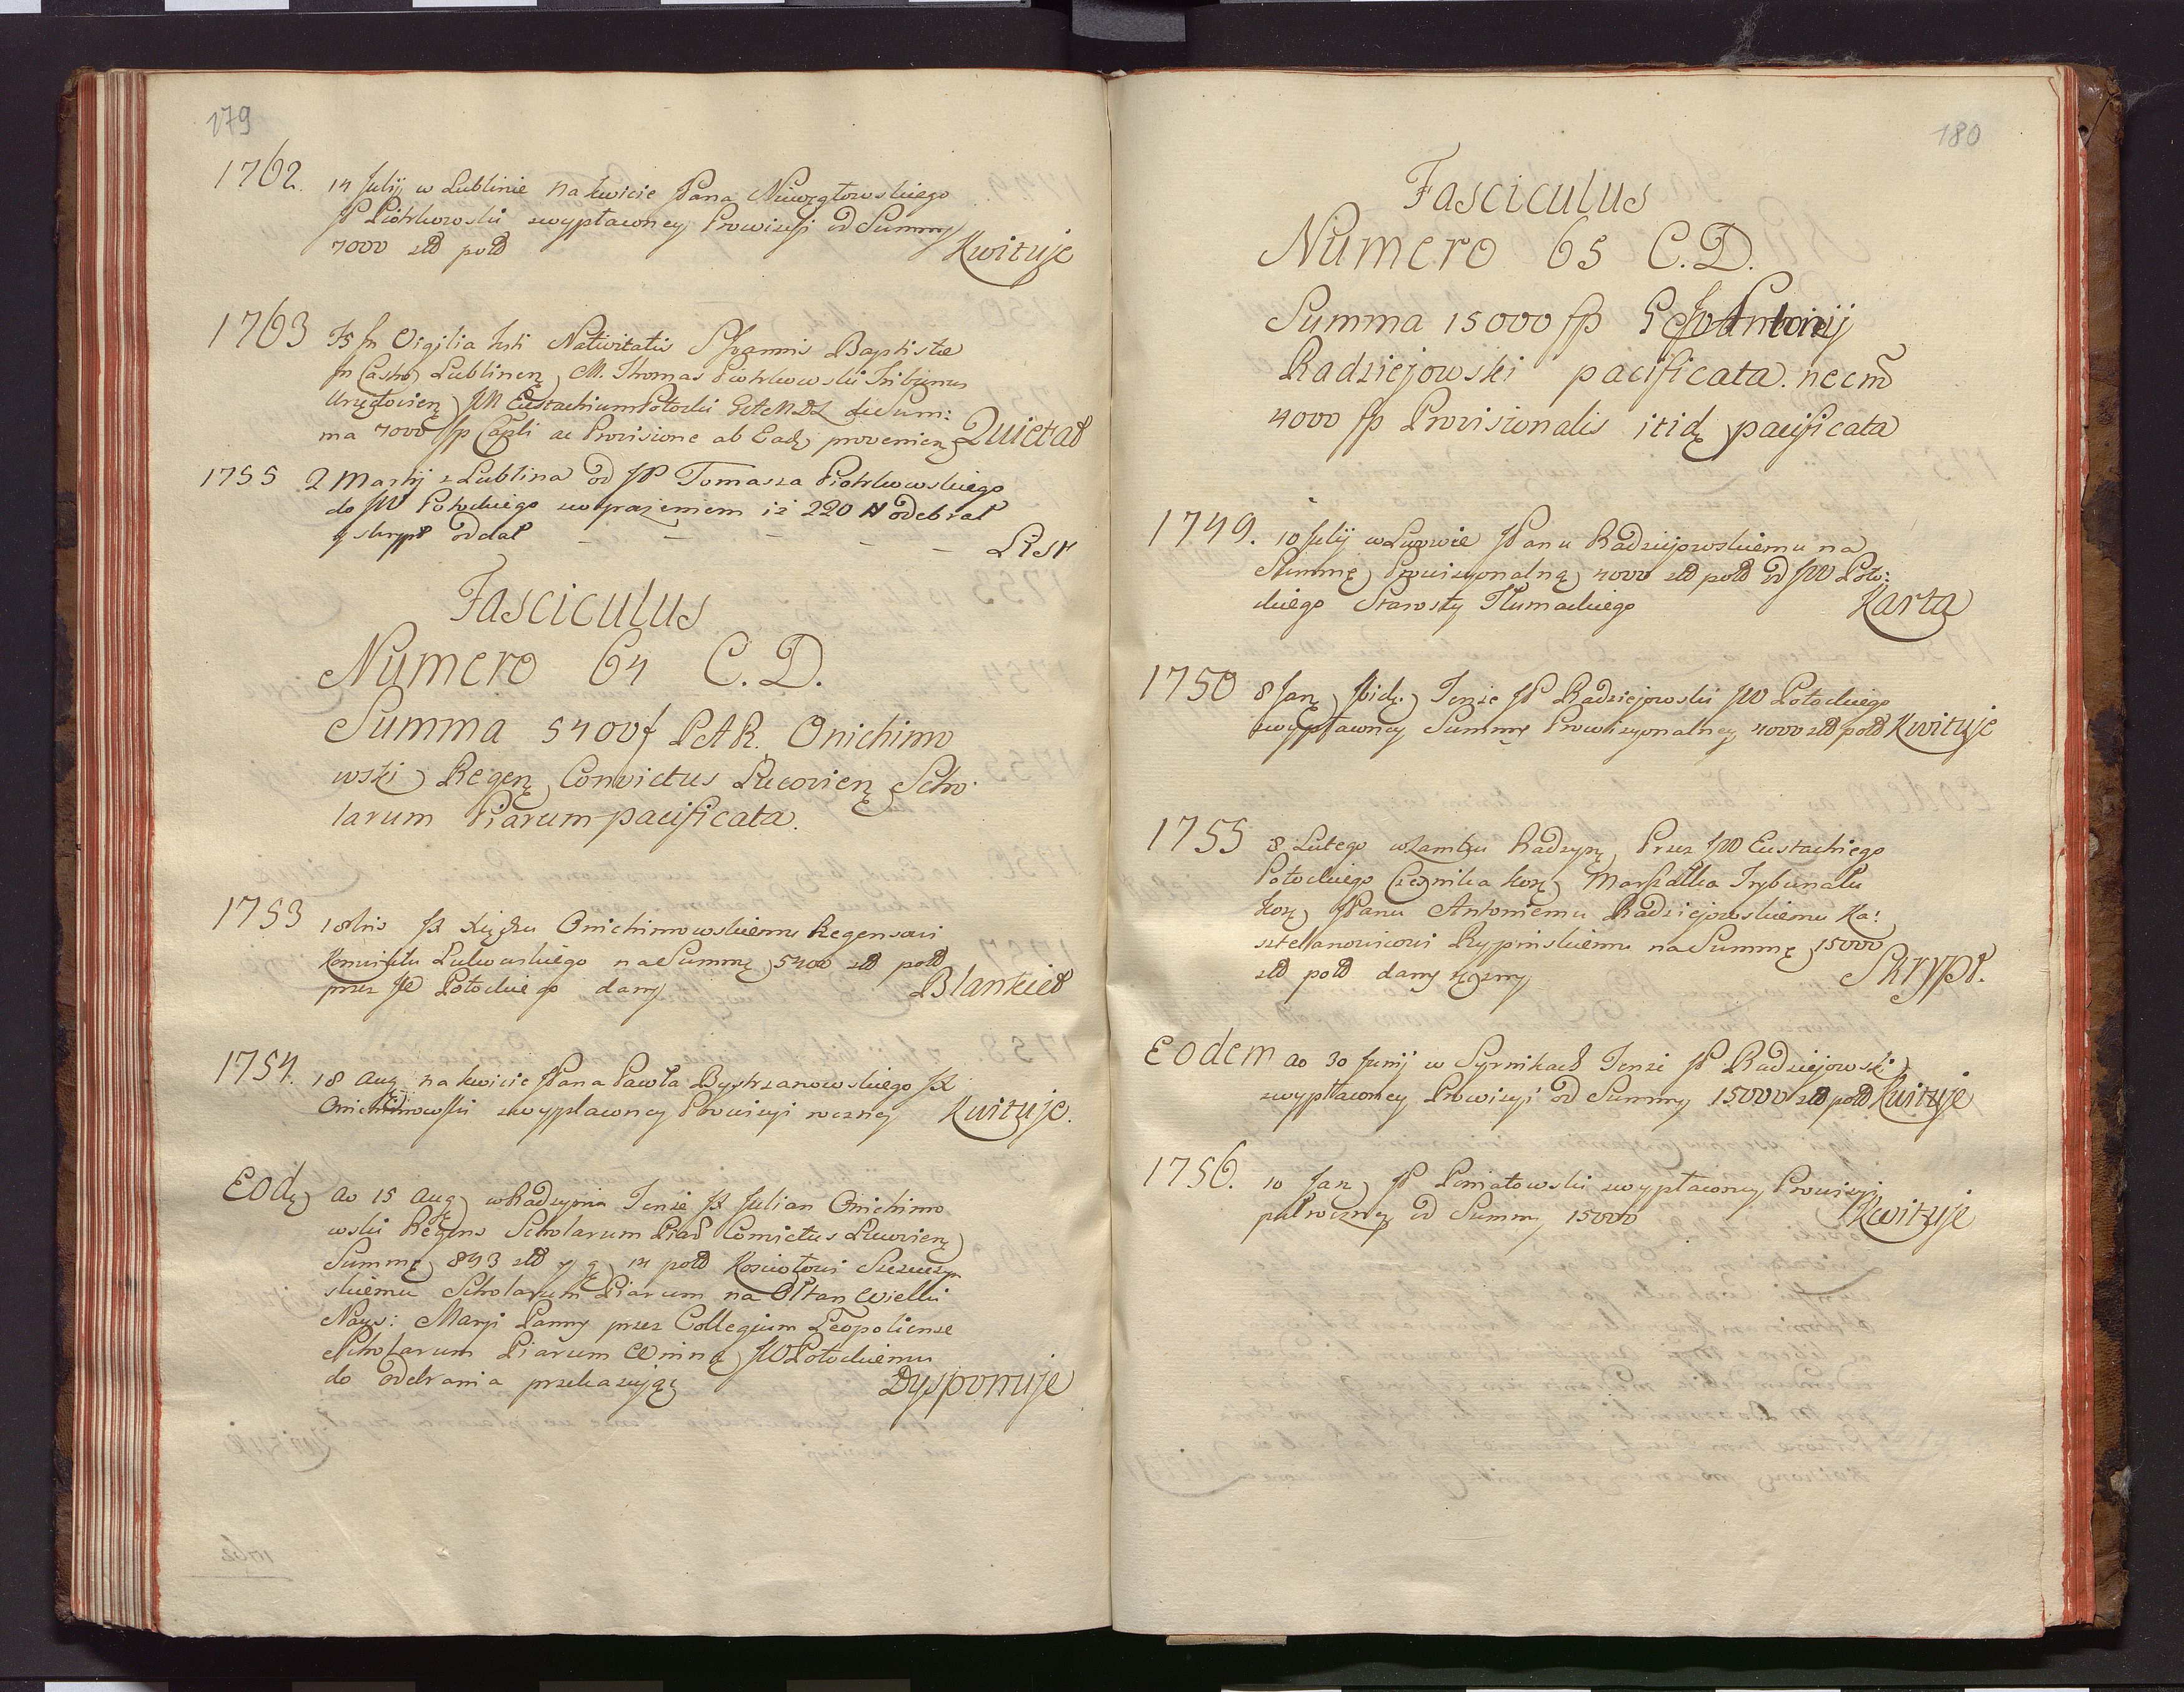 179
1762. 14 Julij w Lublinie na kwicie JPana Niwęgłowskiego
JP Piotrkowski z wypłaconey Prowizyi od Summy
7000 złł poll Kwituje
1763 F5 in Vigilia festi Nativitatis S Joannis Baptistæ
in Castro Lublinen M. Thomas Piotrkowski Tribunus
Urzędovien JM Eustachium Potocki de Sum:
ma 7000 fp Capli ac Provisione ab Eadę provenien Quietat
1755 2 Martij z Lublina od JP Tomasza Piotrkowskiego
do JW Potockiego z wyrażeniem iż 220 # odebrał
y skrypt oddał – – – – – List
Fasciculus
Numero 64 C.D.
Summa 5400 f PAR. Onichimo
wski Regen Convictus Lucovien Scho
larum Piarum pacificata.
1753 18bris JX Xiędzu Onichimowskiemu Regensowi
Konwiktu Lukowskiego na Summę 5400 złł poll
przez JW Potockiego dany Blankiet
1754. 18 Aug na kwicie JPana Pawła Bystrzanowskiego JX
Onichimowski z wypłaconey Prowizyi roczney Kwituje.
Eodę ao 15 Aug w Radzyniu Tenże JX Julian Onichimo
wski Regens Scholarum Piar Convictus Lucovien
Summę 893 złł y g 14 poll Kościołowi Szczuczyn
skiemu Scholarum Piarum na Ołtarz Wielki
Nays: Maryi Panny przez Collegium Leopoliense
Scholarum Piarum Winną JW Potockiemu
do odebrania przekazuiąc Dysponuje
180
Fasciculus
Numero 65 C.D.
Summa 15000 fp G Antonij
Radziejowski pacificata. necnō
4000 fp Provisionalis itidę pacificata
1749. 10 Julij w Lwowie JPanu Radziejowskiemu na
Summę Prowizyonalną 4000 złł poll od JW Poto:
ckiego Starosty Tłumackiego Karta
1750 8 Jan Ibidę Tenże JP Radziejowski JW Potockiego
z wypłaconey Summy Prowizyonalney 4000 złł poll Kwituje
1755 8 Lutego w Zamku Radzyn Przez JW Eustachiego
Potockiego Cześnika Kor Marszałka Trybunału
Kor JPanu Antoniemu Radziejowskiemu Ka:
sztelanowicowi Rypinskiemu na Summę 15000
złł poll dany ręczny Skrypt.
Eodem ao 30 Junij w Syrnikach Tenże JP Radziejowski
z wypłaconey Prowizyi od Summy 15000 złł poll Kwituje
1756. 10 Jan JP Poniatowski z wypłaconey Prowizyi
pułroczney od Summy 15000 Kwituje